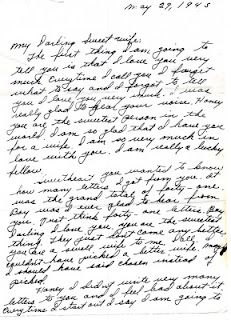 May 29, 1945
My Darling Sweet wife:
The first thing I am going to
tell you is that I love you very
much. Everytime I call you I forget
what to say and I forgot to tell
you I love you very much. I was
really glad to hear your voice. Honey
you are the sweetest person in the
world. I am so glad that I have you
for a wife. I am so very much in
love with you. I am really a lucky
fellow.
Sweetheart you wanted to know
how many letters I got from you. It
was the grand total of forty-one.
Boy was I ever glad to hear from
you. Just think forty-one letters. Boy
Darling I love you. You are the sweetest
thing. They just dont come any better.
You are a swell wife to me Doll. I
couldn't have picked a better wife, maybe
I should have said chosen instead of
picked.
Honey I didn't write very many
letters to you and I feel bad about it.
Everytime I start out I say I am going to